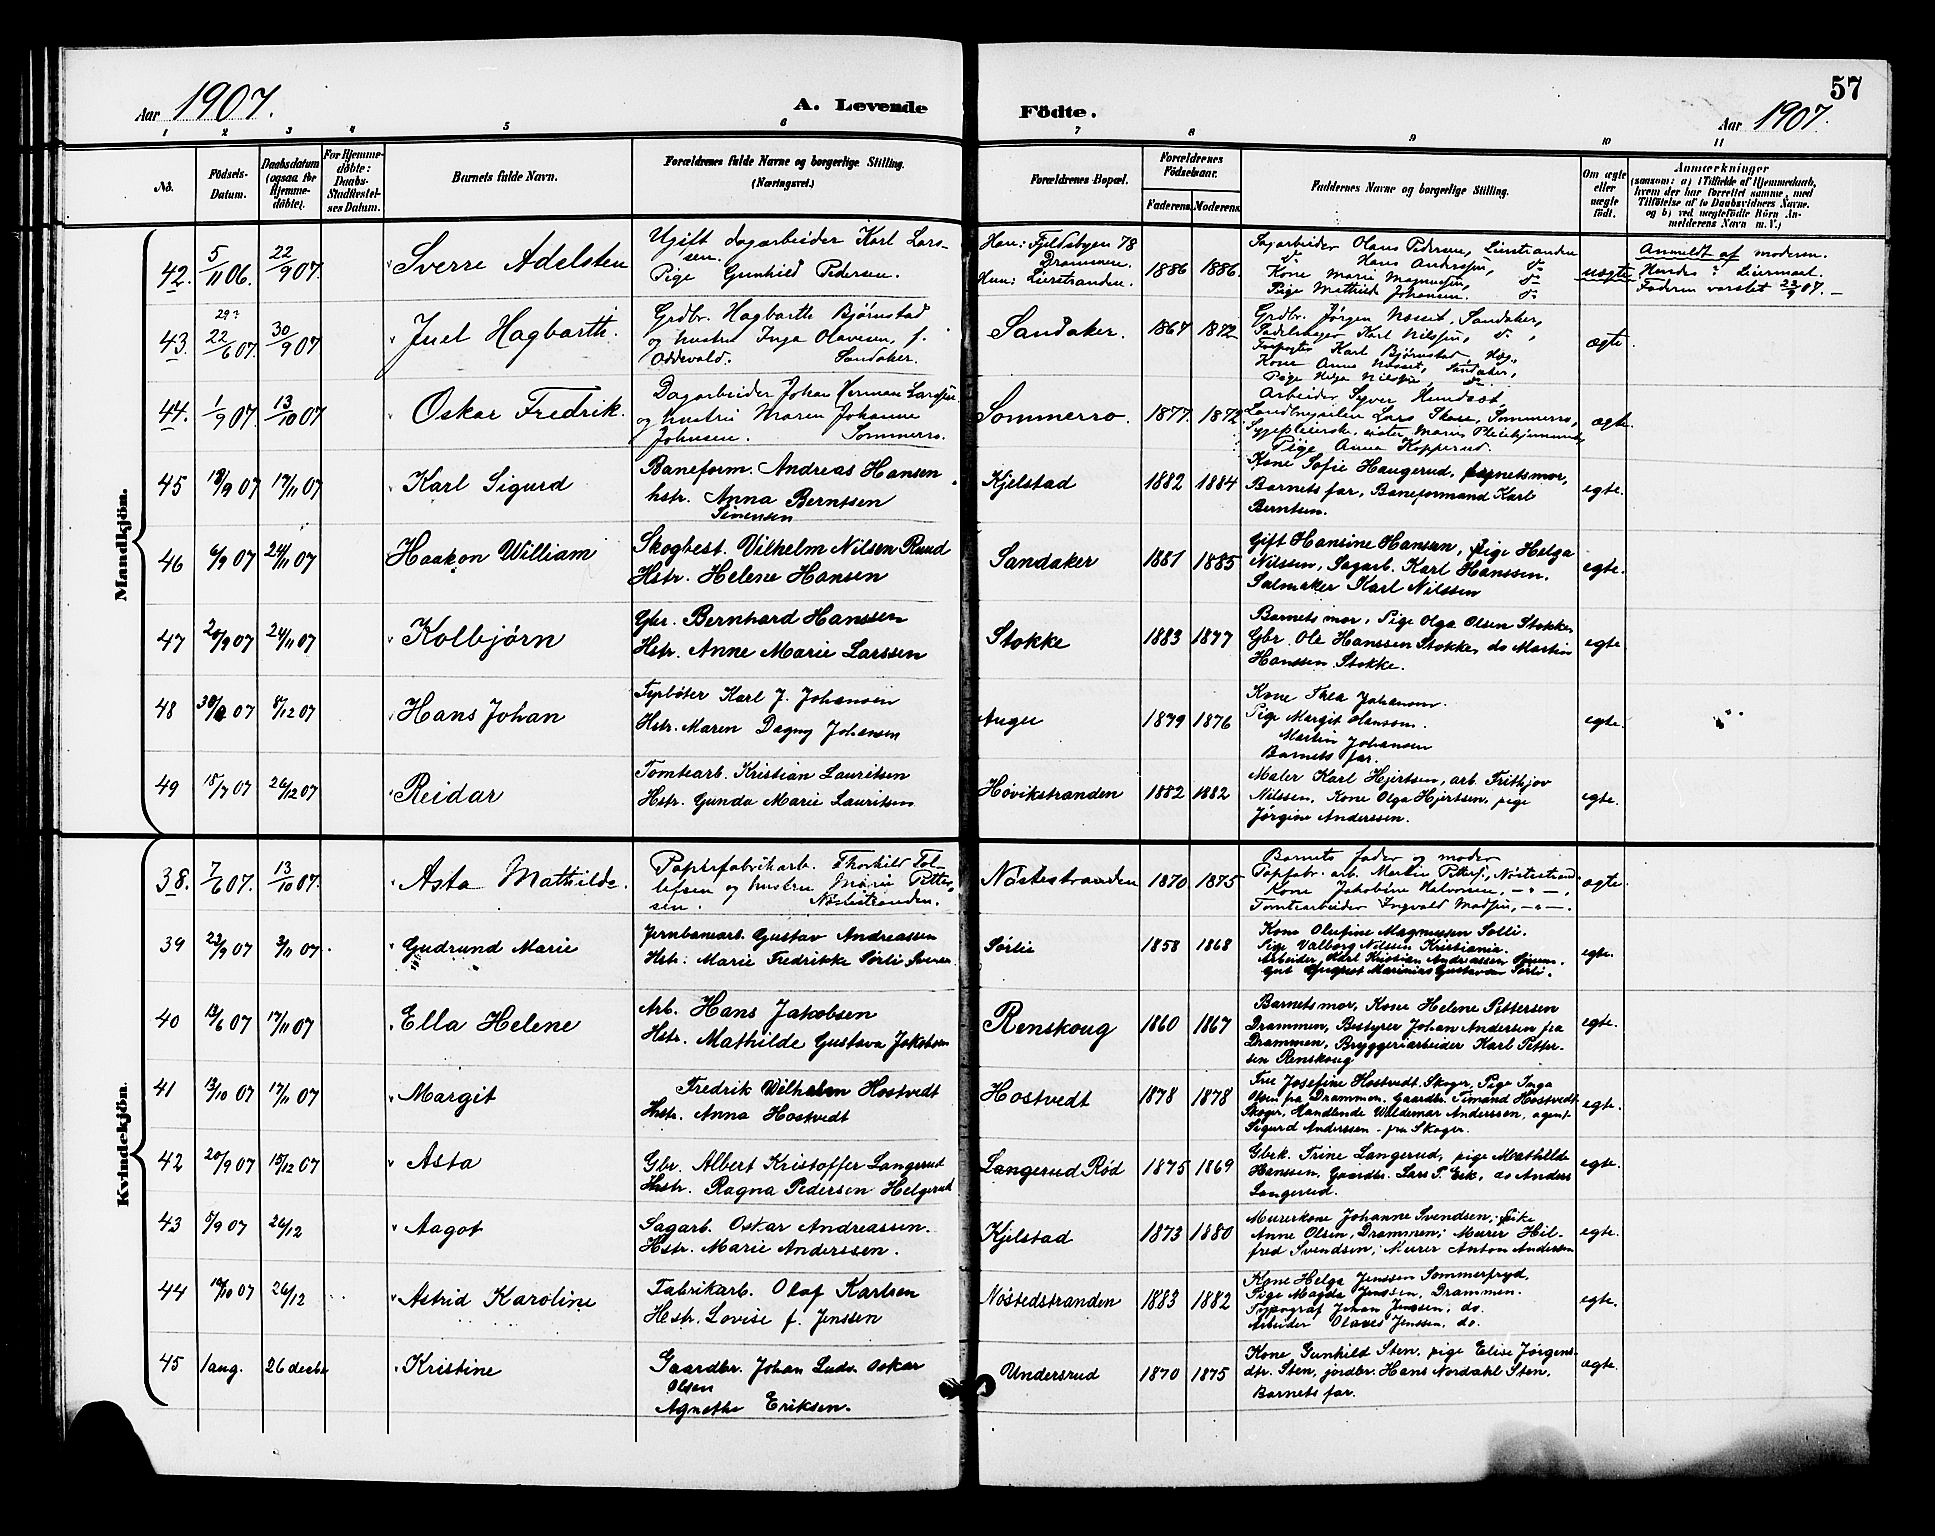 57
Aar 1907.
A. Levende
Födte.
Aar 1907.
1 2 3 4 5 6 7 8 9 10 11
No.
Födsels-
Datum.
Daabsdatum
(ogsaa for
Hjemme-
döbte).
For Hjemme-
döbte:
Daabs-
Stadfæstel-
ses Datum.
Barnets fulde Navn.
Forældrenes fulde Navne og borgerlige Stilling.
(Næringsvei.)
Forældrenes Bopæl.
Forældrenes
Födselsaar.
Faderens. Moderens.
Faddernes Navne og borgerlige Stilling.
Om ægte
eller
uægte
födt.
Anmærkninger
(saasom: a) i Tilfælde af Hjemmedaab,
hvem der har forrettet samme, med
Tilföielse af to Daabsvidners Navne,
og b) ved uægtefödte Börn An-
melderens Navn m. V.)
Mandkjön.
42. 5/11 06. 22/9 07. Sverre Adelsten
Ugift dagarbeider Karl Lars-
sen.
Pige Gunhild Pedersen.
Han: Fjeldsbyen 78
Drammen.
Hun: Lierstranden.
1886 1886.
Sagarbeider Olaus Pedersen, Lierstranden
do Hans Anderssen, do
Kone Marie Magnussen, do
Pige Mathilde Johansen. do
uægte
Anmeldt af moderen.
Hendes Liermaal.
Faderen varslet 23/9 07. —
43. 29? 22/6 07. 30/9 07 Juel Hagbarth.
Grdbr. Hagbarth Bjørnstad
og hustru Inga Olavesen, f.
Oddevald. Sandaker.
Sandaker. 1867 1872
Grdbr. Jörgen Nösset, Sandaker,
Sadelmager Karl Nilssen, do,
Karl Bjørnstad
Kone Anna Nösset, Sandaker,
Pige Helga Nilssen, do
ægte.
44. 1/9 07. 13/10 07 Oskar Fredrik.
Dagarbeider Johan Herman Larssen
og hustru Maren Johanne
Johnsen. Sommerro.
Sommerro. 1877 1872.
Arbeider Syver Hundsöt,
Lars Skore, Sommerro,
Sygepleierske, søster Marie
Pige Anna Kopperud.
ægte.
45 18/9 07 17/11 07 Karl Sigurd
Baneform. Andreas Hansen
hstr. Anna Berntsen
Simensen
Kjelstad 1882 1884
Kone Sofie Haugerud, barnetsmor,
Barnets far, Baneformand Karl
Berntsen.
egte.
46 6/9 07 24/11 07 Haakon William
Skogbest. Vilhelm Nilsen Ruud
Hstr. Helene Hansen
Sandaker 1881 1885
Gift Hansine Hansen, pige Helga
Nilssen, Sagarb. Karl Hanssen.
Salmaker Karl Nilssen
egte.
47 20/9 07 24/11 07 Kolbjørn
Gbr. Bernhard Hanssen
Hstr. Anne Marie Larssen
Stokke 1883 1877
Barnets mor, Pige Olga Olsen Stokke,
Gbr. Ole Hanssen Stokke, do Martin
Hanssen Stokke.
egte.
48 07 8/12 07 Hans Johan
Fyrbøter Karl J. Johansen
Hstr. Maren Dagny Johansen
Auger 1879 1876
Kone Thea Johansen.
Pige Margit Hanssen.
Martin Johansen
Barnets far.
egte.
49 18/7 07 26/12 07 Reidar
Tomtearb. Kristian Lauritsen
Hstr. Gunda Marie Lauritsen
Høvikstranden 1882 1882
Maler Karl Hjertsen, arb. Frithjov
Nilssen, Kone Olga Hjertsen, pige
Jørgine Anderssen.
egte.
Kvindekjön.
38. 7/6 07. 13/10 07. Asta Mathilde.
Papirfabrikarb. Thorkild Tol-
lefsen og hustru Marie Petter-
sen. Nöstestranden.
Nöstestranden 1870 1875
Barnets fader og moder
Papfabr. arb. Martin Peters., Nöstestrand.
Kone Jakobine Halvorsen, —"—,
Tomtearbeider Ingvald Madsen, —"—.
ægte.
39 23/9 07 3/11 07. Gudrund Marie
Jernbanearb. Gustav Andreassen
Hstr. Marie Fredrikke Sørli Svensen
Sørlie 1858 1868
Kone Olufine Magnussen Solli.
Pige Valborg Nilssen Kristiania.
Arbeider Karl Kristian Andreassen
Gut August Marinius Gustavsen Sørli.
egte.
40 13/6 07 17/11 07 Ella Helene
Arb. Hans Jakobsen
Hstr. Mathilde Gustava Jakobsen
Renskoug 1860 1867
Barnets mor, Kone Helene Pettersen
Drammen, Bestyrer Johan Andersen fra
Drammen, Bryggeriarbeider Karl Petter-
sen Renskoug
egte.
41 13/10 07 17/11 07 Margit
Fredrik Wilhelm Hostvedt
Hstr. Anna Hostvedt
Hostvedt 1878 1878
Frue Josefine Hostvedt Skoger, Pige Inga
Olsen fra Drammen. Gaardbr. Timand Hostvedt
Skoger, Handlende Waldemar Anderssen, agent
Sigurd Anderssen — fra Skoger.
egte.
42 20/9 07 15/12 07 Asta
Gbr. Albert Kristoffer Langerud
Hstr. Ragna Pedersen Helgerud
Langerud Rød 1875 1869
Gbrk. Trine Langerud, pige Mathilde
Hanssen, Gaardbr. Lars P. Eek, do Anders
Langerud.
egte.
43 5/9 07 26/12 Aagot
Sagarb. Oskar Andreassen.
Hstr. Marie Anderssen.
Kjelstad 1873 1880
Murerkone Johanne Svendsen; pike
Anne Olsen, Drammen; Murer Hil-
fred Svendsen; Murer Anton Andersen
egte.
44 10/10 07 26/12 Astrid Karoline
Fabrikarb. Olaf Karlsen
Hstr. Lovise f. Jenssen
Nøstedstranden 1883 1882
Kone Helga Jenssen Sommerfryd.
Pige Magda Jenssen, Drammen.
Typograf Johan Jenssen, do.
Arbeider Olaves Jenssen, do.
egte.
45 1 aug. 26 decbr Kristine
Gaardbr. Johan Ludv. Oskar
Olsen
Agnethe Eriksen.
Undersrud 1870 1875
Kone Gunhild Sten, pige Elise Jørgens-
dtr. Sten, jordbr. Hans Nordahl Sten,
Barnets far.
ægte.